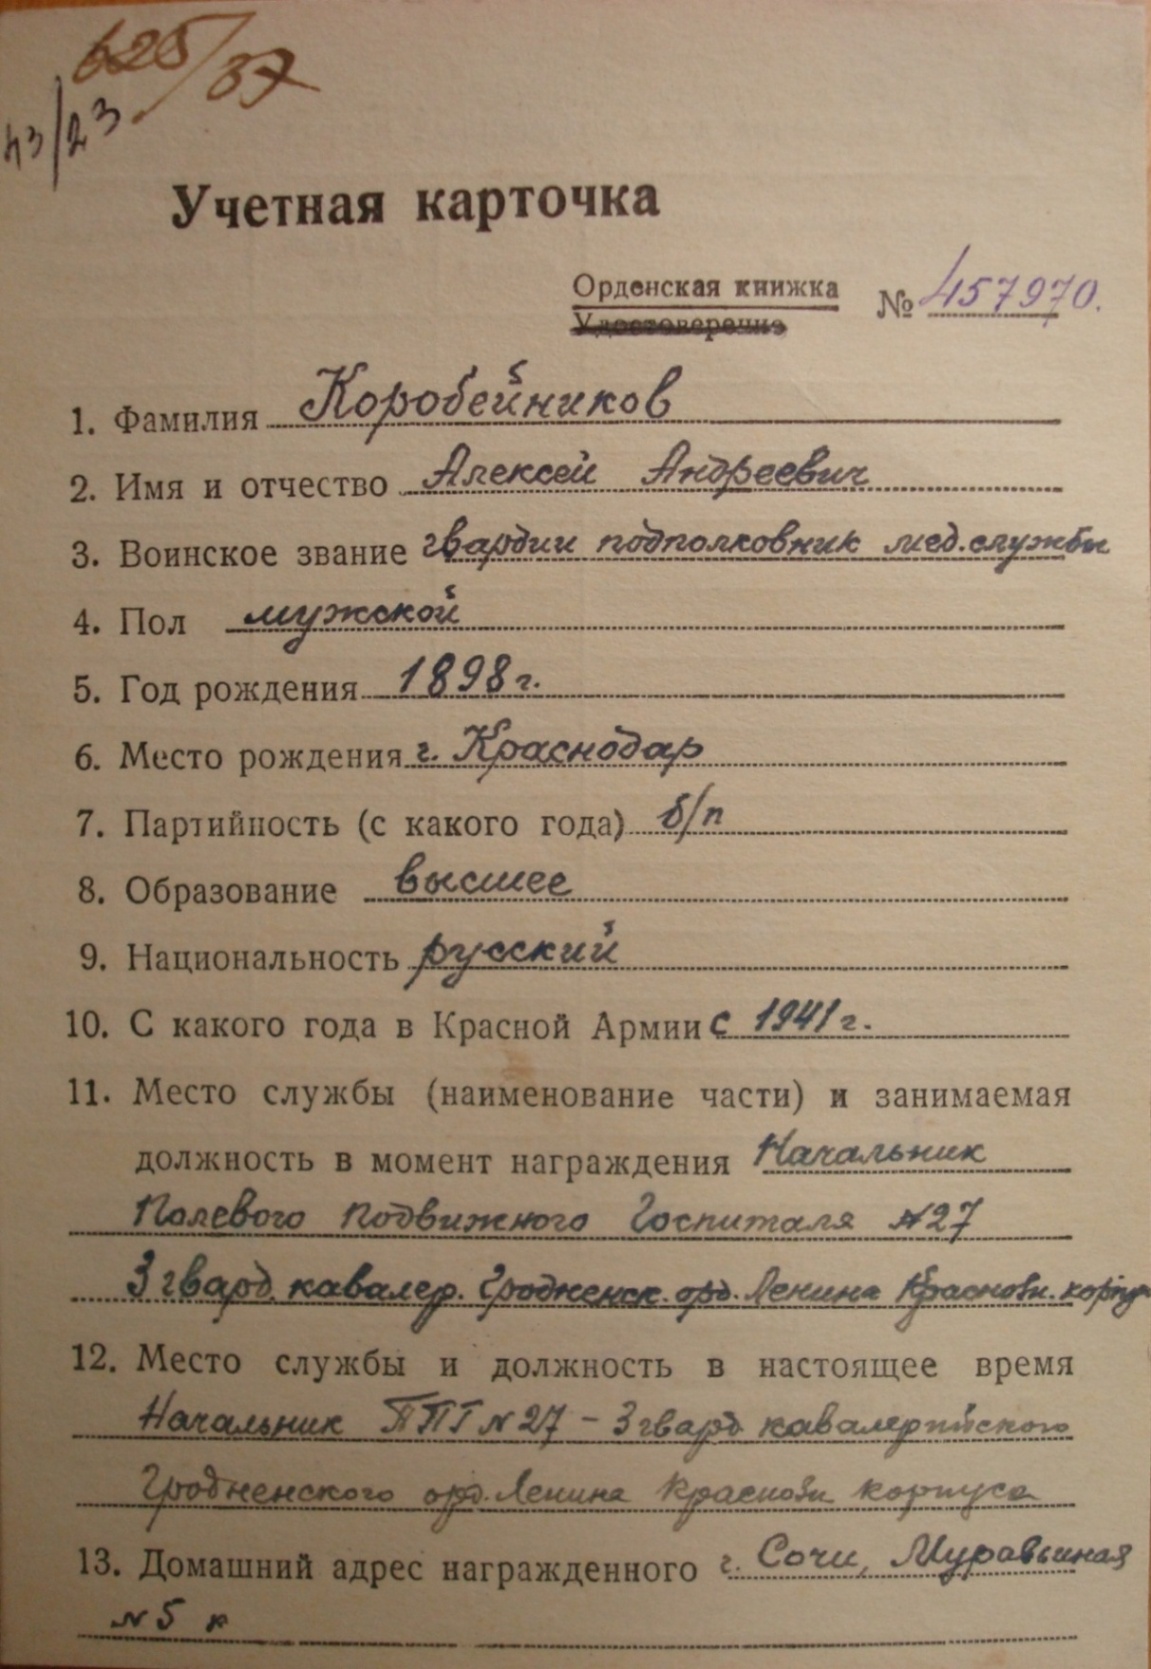 625/37
43/23
Учетная карточка
Орденская книжка № 457970.
Удостоверение
1. Фамилия Коробейников
2. Имя и отчество Алексей Андреевич
3. Воинское звание гвардии подполковник мед. службы
4. Пол мужской
5. Год рождения 1898 г.
6. Место рождения г. Краснодар
7. Партийность (с какого года) б/п
8. Образование высшее
9. Национальность русский
10. С какого года в Красной Армии с 1941 г.
11. Место службы (наименование части) и занимаемая
должность в момент награждения Начальник
Полевого Подвижного Госпиталя №27
3 гвард. кавалер. Гродненск. орд. Ленина Краснозн. корпус
12. Место службы и должность в настоящее время
Начальник ППГ №27 - 3 гвард кавалерийского
Гродненского орд. Ленина Краснозн корпуса
13. Домашний адрес награжденного г. Сочи, Муравьиная
№5